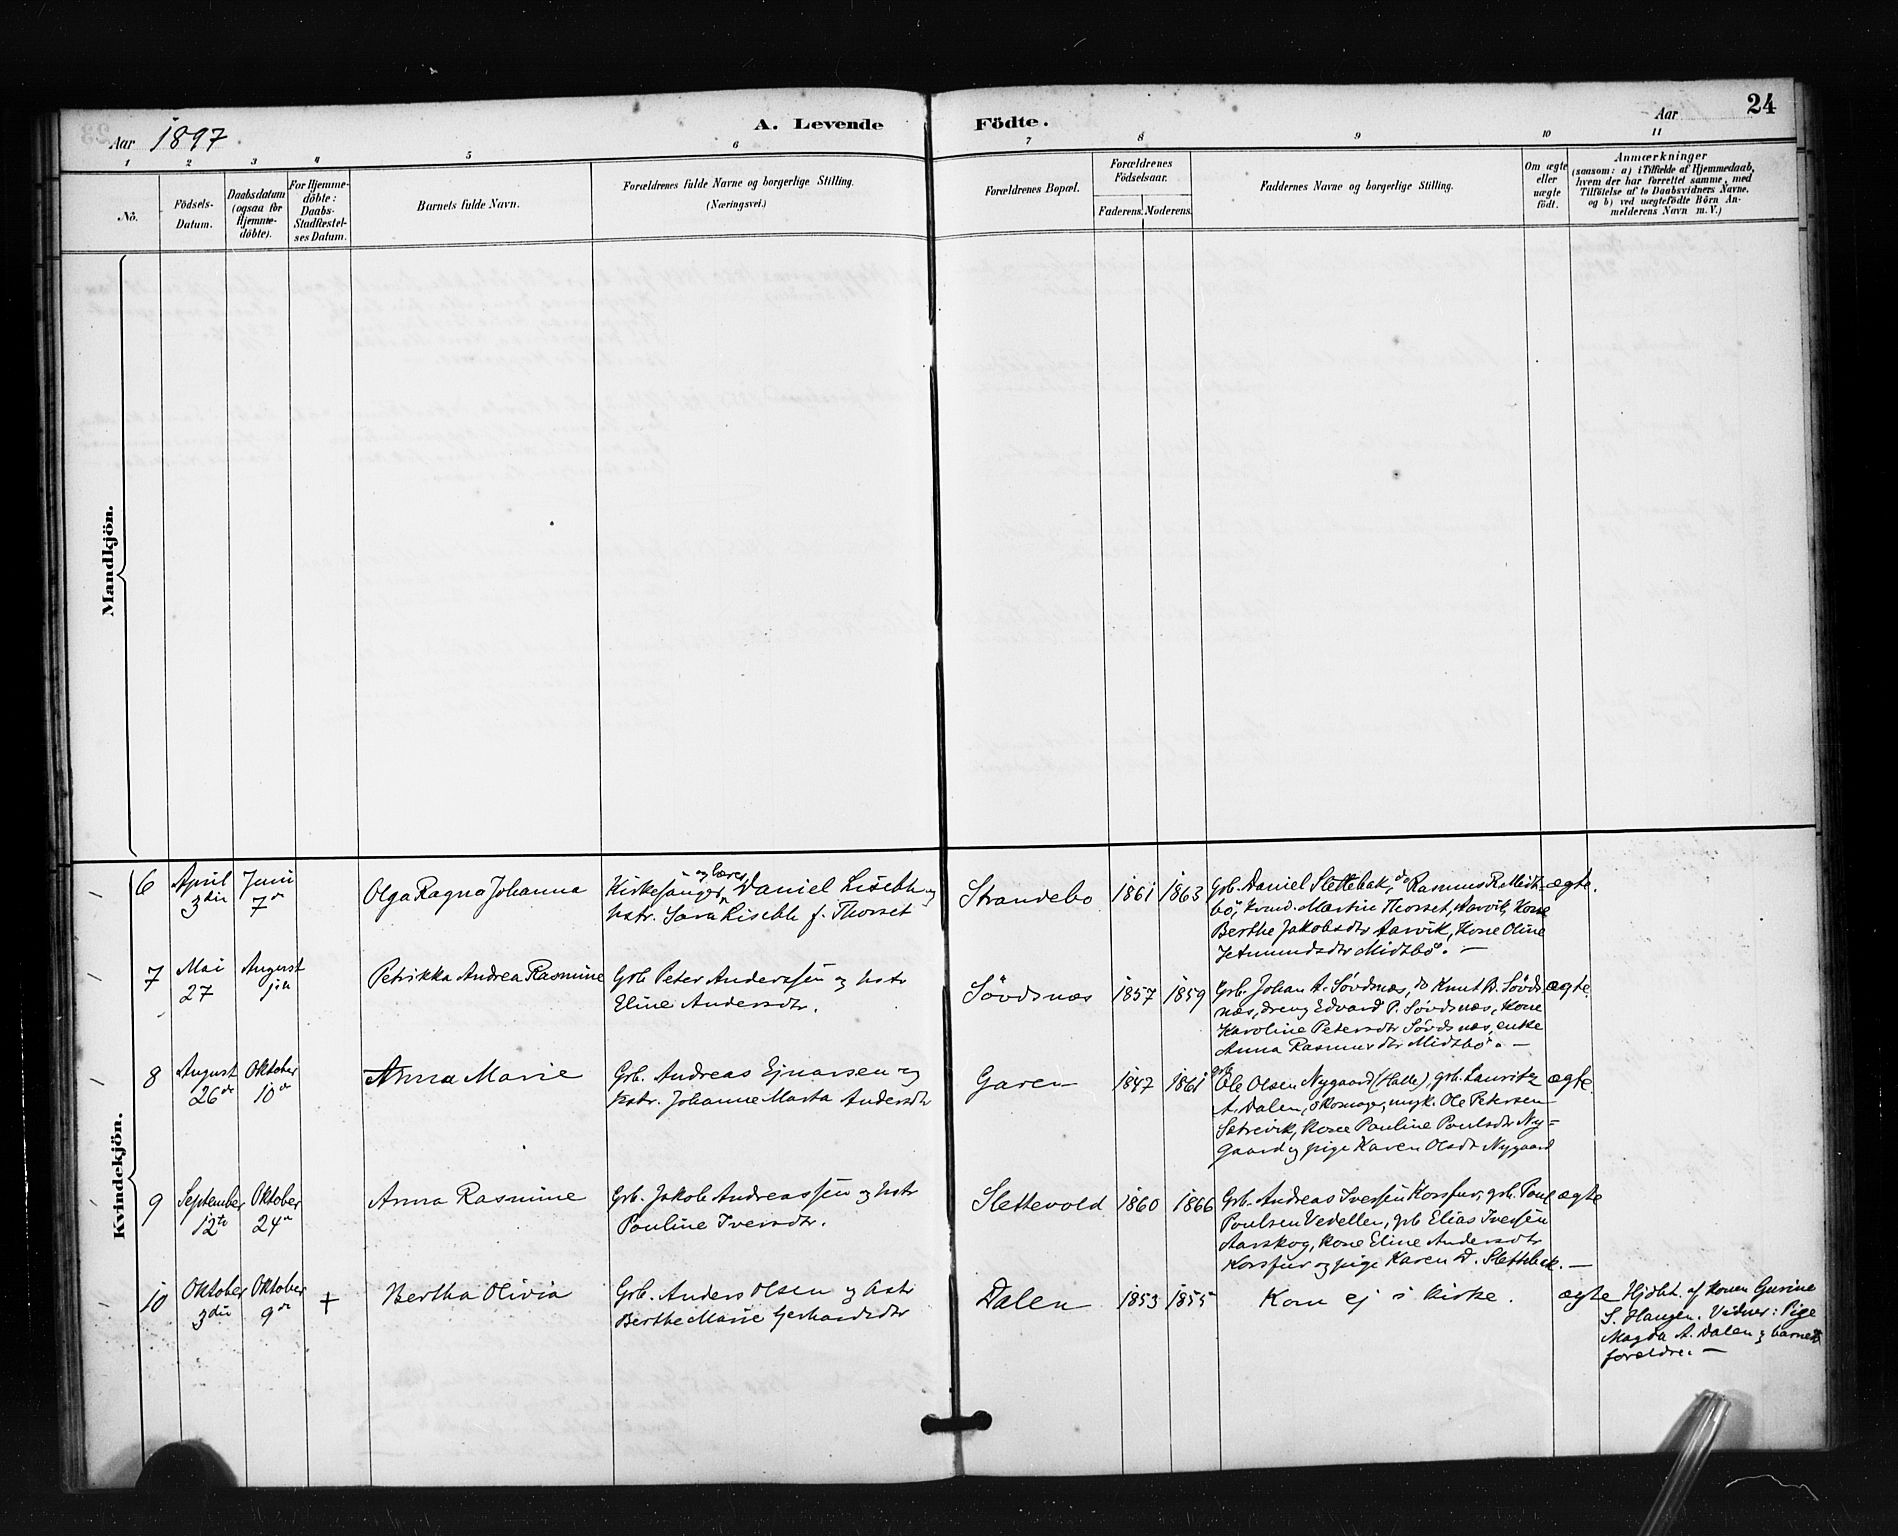 Aar 1897
A. Levende Födte.
Aar
24
1 2 3 4 5 6 7 8 9 10 11
No.
Födsels-Datum.
Daabsdatum (ogsaa for Hjemme-döbte).
For Hjemme-döbte: Daabs-Stadfæstel-ses Datum.
Barnets fulde Navn.
Forældrenes fulde Navne og borgerlige Stilling.
(Næringsvei.)
Forældrenes Bopæl.
Forældrenes Födselsaar.
Faderens. Moderens.
Faddernes Navne og borgerlige Stilling.
Om ægte eller uægte födt.
Anmærkninger
(saasom: a) i Tilfælde af Hjemmedaab,
hvem der har forrettet samme, med
Tilföielse af to Daabsvidners Navne.
og b) ved uægtefödte Börn An-
melderens Navn m. V.)
Mandkjön.
Kvindekjön.
6 April 3die Juni 7de Olga Ragna Johanna
Kirkesanger og lærer Daniel Liseth og
hstr. Sara Liseth f. Thorset
Strandebo 1861 1863
Grb. Daniel Slettebak, do Rasmus R. Midt-
bö, kvmd. Martin Thorset, Aarvik, Kone
Berthe Jakobsdtr Aarvik, Kone Oline
Jetmundsdtr Midtbö. —
ægte.
7 Mai 27 August 1ste Petrikka Andrea Rasmine
Grb Peter Anderssen og hstr
Eline Andersdtr.
Sövdsnæs 1857 1859
Grb. Johan A. Sövdsnæs, do Knut B. Sövds-
næs, dreng Edvard P. Sövdsnæs, Kone
Karoline Petersdtr Sövdsnæs, enke
Anna Rasmusdtr Midtbö. —
ægte.
8 August 26de Oktober 10de Anna Marie
Grb. Andreas Ejnarsen og
hstr. Johanne Marta Andersdtr
Garen 1847 1861
grb. Ole Olsen Nygaard (Halle), grb. Lauritz
A. Dalen, skomager, ungk. Ole Petersen
Sætrevik, Kone Pauline Poulsdtr Ny=
gaard og pige Karen Olsdtr Nygaard
ægte.
9 September 12te Oktober 24de Anna Rasmine
Grb. Jakob Andreassen og hstr
Pauline Iversdtr.
Slettevold 1860 1866
Grb. Andreas Iversen Korsfur, grb. Poul
Poulsen Vedeller, grb Elias Iversen
Aarskog, Kone Eline Andersdtr
Korsfur og pige Karen D. Slettebak. —
ægte
10 Oktober 3die Oktober 9de + Bertha Olivia
Grb. Anders Olsen og hstr
Berthe Marie Gerhardsdtr
Dalen 1853 1855
Kom ej i kirke.
ægte
Hjdbt. af konen Gurine
S. Haugen. Vidner: Pige
Magda A. Dalen og barnets
forældre. —